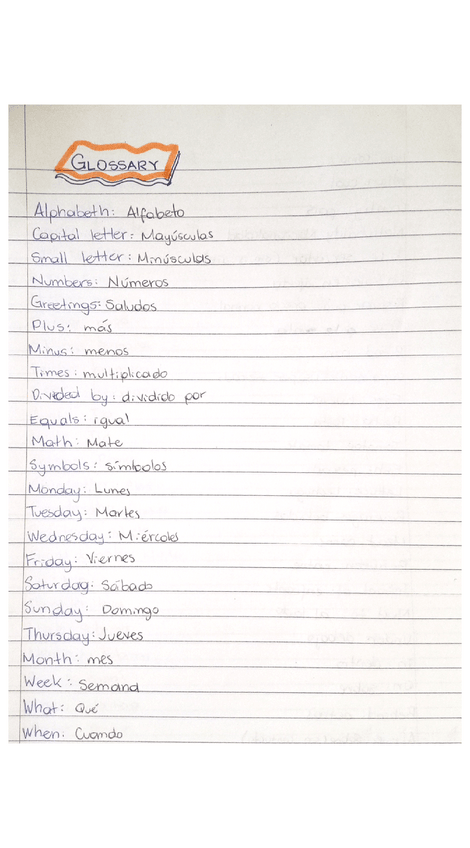 GLOSSARY
Alphabeth: Alfabeto
Capital letter: Mayúsculas
Small letter: Minúsculas
Numbers: Números
Greetings: Saludos
Plus: más
Minus: menos
Times: multiplicado
Divided by: dividido por
Equals: igual
Math: Mate
Symbols: símbolos
Monday: Lunes
Tuesday: Martes
Wednesday: Miércoles
Friday: Viernes
Saturday: Sábado
Sunday: Domingo
Thursday: Jueves
Month: mes
Week: Semana
What: Qué
When: Cuando